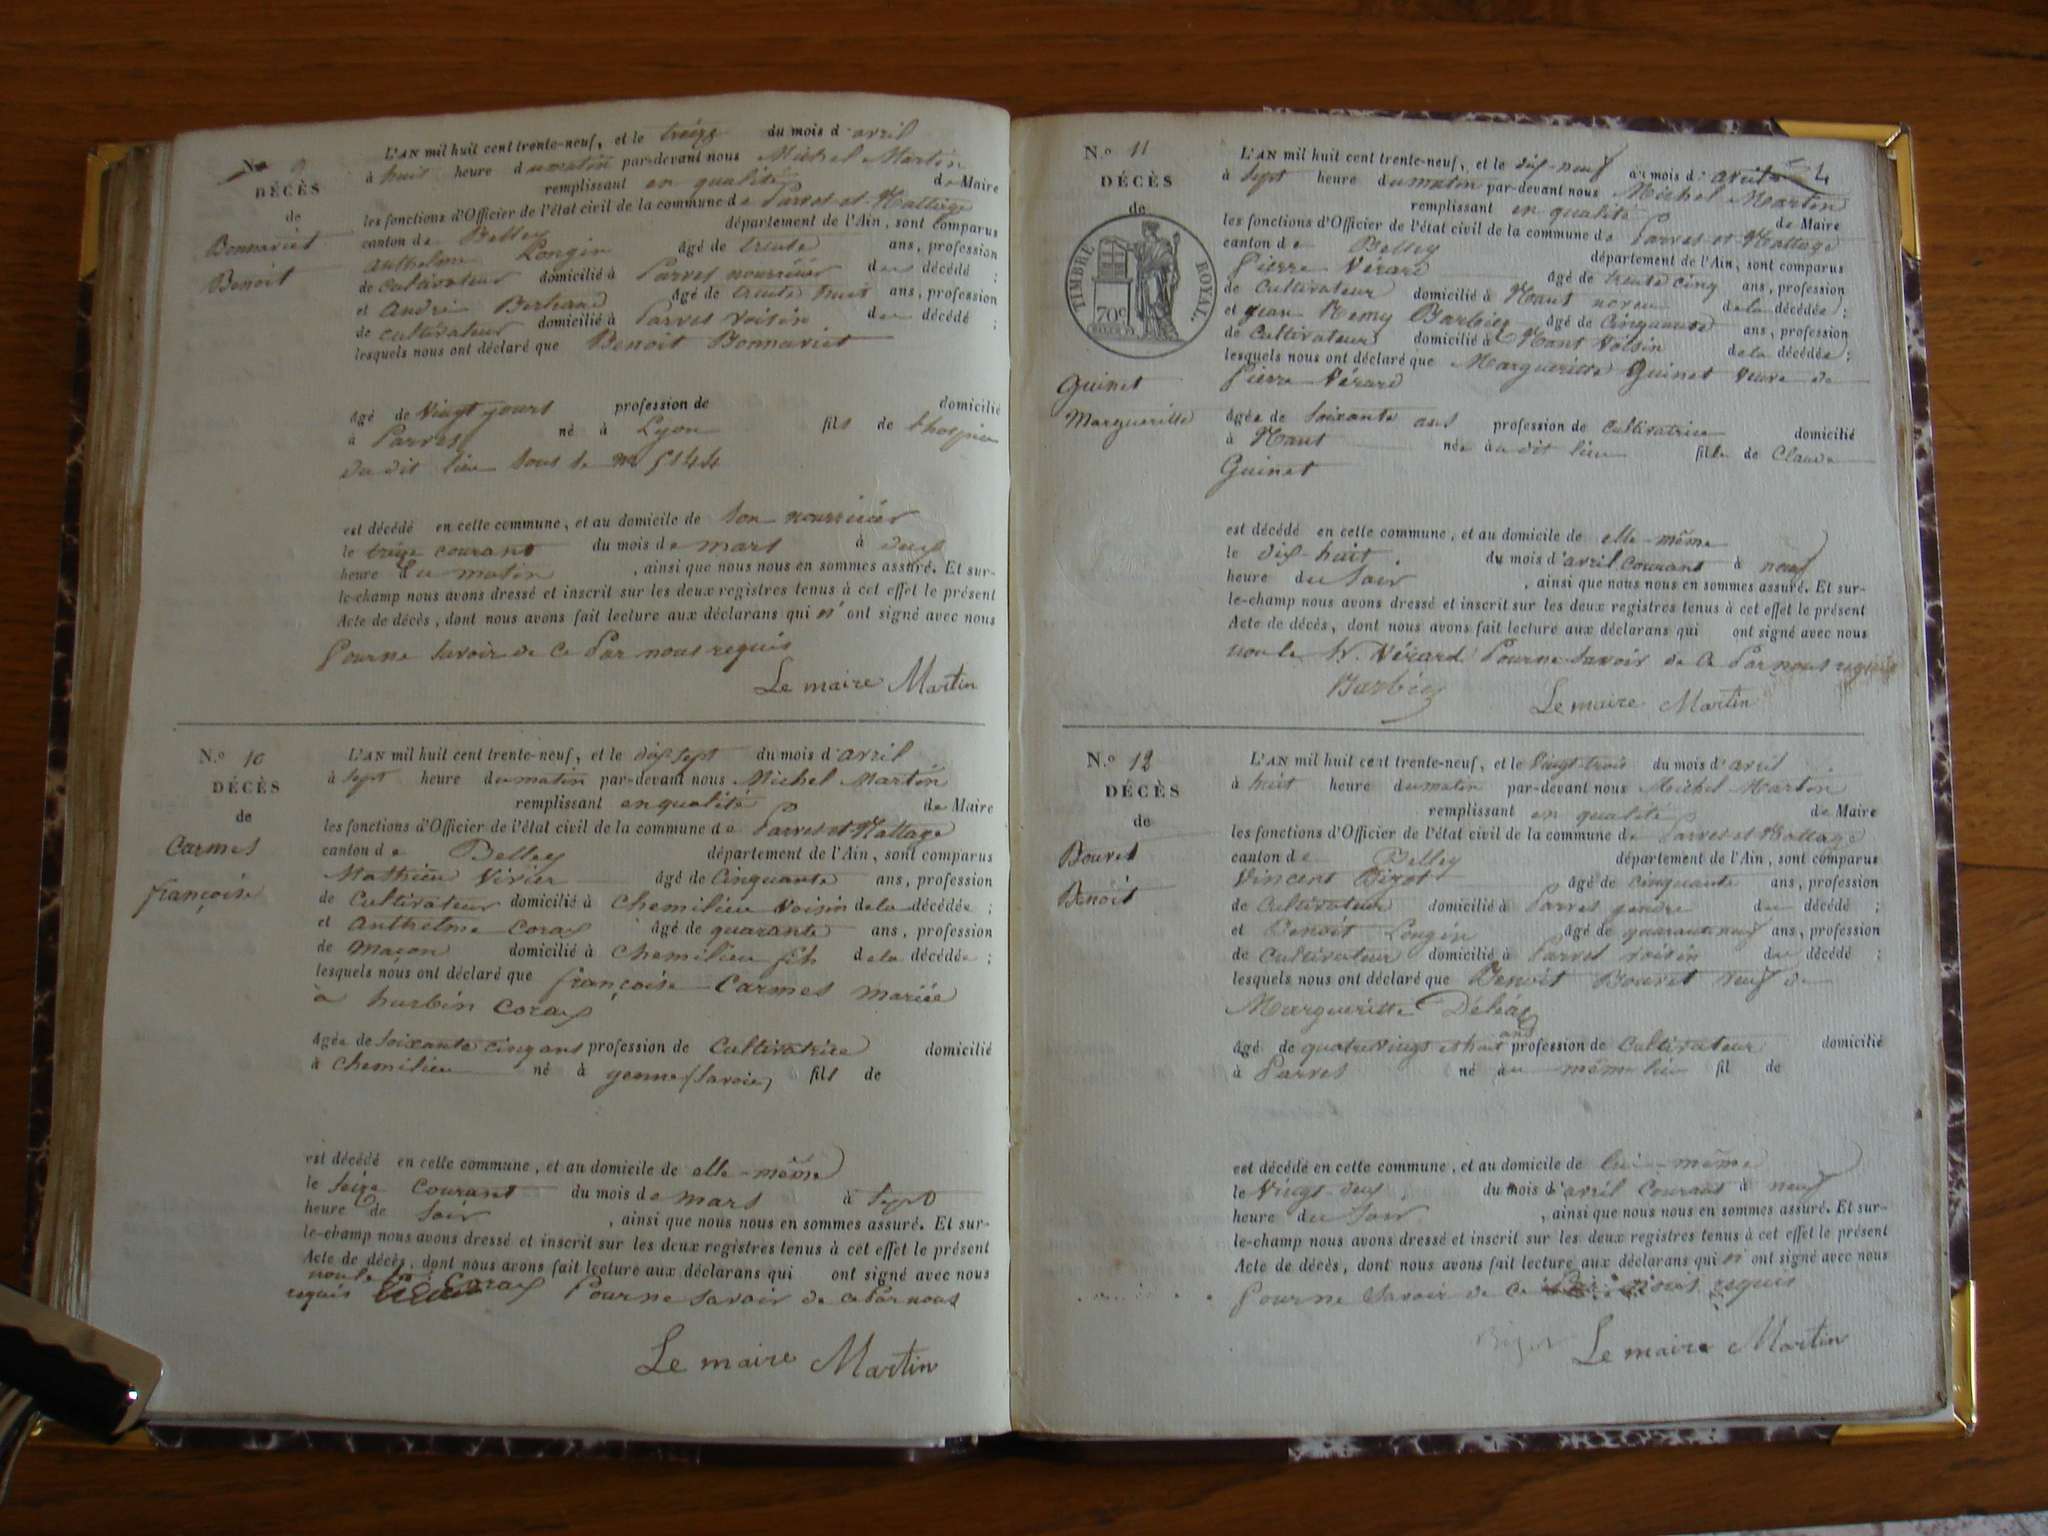 N.o 9
DÉCÈS
de
Bonnaviet
Benoit
L'AN mil huit cent trente-neuf, et le treize du mois d'avril
à huit heure du matin par-devant nous Michel Martin
remplissant en qualité de Maire
les fonctions d'Officier de l'état civil de la commune de Parves et Nattage
canton de Belley département de l'Ain, sont comparus
Anthelme Longin âgé de trente ans, profession
de cultivateur domicilié à Parves nourricier du décédé ;
et André Bertrand âgé de trente huit ans, profession
de cultivateur domicilié à Parves voisin du décédé ;
lesquels nous ont déclaré que Benoit Bonnaviet
âgé de vingt jours profession de domicilié
à Parves né à Lyon fils de l'hospice
du dit lieu sous le n° 5144
est décédé en cette commune, et au domicile de son nourricier
le treize courant du mois de mars à deux
heure du matin , ainsi que nous nous en sommes assuré. Et sur-
le-champ nous avons dressé et inscrit sur les deux registres tenus à cet effet le présent
Acte de décès, dont nous avons fait lecture aux déclarans qui n'ont signé avec nous
Pour ne savoir de ce Par nous requis
Le maire Martin
N.o 10
DÉCÈS
de
Carmes
françoise
L'AN mil huit cent trente-neuf, et le dix sept du mois d'avril
à sept heure du matin par-devant nous Michel Martin
remplissant en qualité de Maire
les fonctions d'Officier de l'état civil de la commune de Parves et Nattage
canton de Belley département de l'Ain, sont comparus
Mathieu Vivier âgé de Cinquante ans, profession
de Cultivateur domicilié à Chemilieu voisin de la décédée ;
et Anthelme Corax âgé de quarante ans, profession
de maçon domicilié à Chemilieu fils de la décédée ;
lesquels nous ont déclaré que françoise Carmes mariée
à hurbin Corax
âgée de soixante cinq ans profession de Cultivatrice domicilié
à Chemilieu né à yenne (Savoie) fils de
est décédé en cette commune, et au domicile de elle-même
le seize courant du mois de mars à sept
heure de soir , ainsi que nous nous en sommes assuré. Et sur-
le-champ nous avons dressé et inscrit sur les deux registres tenus à cet effet le présent
Acte de décès, dont nous avons fait lecture aux déclarans qui ont signé avec nous
non le Corax Pour ne savoir de ce par nous
requis
Le maire Martin
N.o 11
DÉCÈS
de
TIMBRE ROYAL.
70c
Guinet
Margueritte
4
L'AN mil huit cent trente-neuf, et le dix-neuf du mois d'avril
à sept heure du matin par-devant nous Michel Martin
remplissant en qualité de Maire
les fonctions d'Officier de l'état civil de la commune de Parves et Nattage
canton de Belley département de l'Ain, sont comparus
Pierre Vérard âgé de trente cinq ans, profession
de Cultivateur domicilié à Nant neveu de la décédée ;
et jean Remy Barbier âgé de Cinquante ans, profession
de Cultivateur domicilié à Nant Voisin de la décédée ;
lesquels nous ont déclaré que Margueritte Guinet veuve de
Pierre Vérard
âgée de soixante ans profession de Cultivatrice domicilié
à Nant née au dit lieu fille de Claude
Guinet
est décédé en cette commune, et au domicile de elle-même
le dix-huit du mois d'avril courant à neuf
heure du soir , ainsi que nous nous en sommes assuré. Et sur-
le-champ nous avons dressé et inscrit sur les deux registres tenus à cet effet le présent
Acte de décès, dont nous avons fait lecture aux déclarans qui ont signé avec nous
non le Sr. Vérard Pour ne savoir de ce Par nous requis
Barbier Le maire Martin
N.o 12
DÉCÈS
de
Bouvet
Benoit
L'AN mil huit cent trente-neuf, et le vingt-trois du mois d'avril
à huit heure du matin par-devant nous Michel Martin
remplissant en qualité de Maire
les fonctions d'Officier de l'état civil de la commune de Parves et Nattage
canton de Belley département de l'Ain, sont comparus
Vincent Bizot âgé de cinquante ans, profession
de Cultivateur domicilié à Parves gendre du décédé ;
et Benoit Longin âgé de quarante neuf ans, profession
de Cultivateur domicilié à Parves voisin du décédé ;
lesquels nous ont déclaré que Benoit Bouvet veuf de
Margueritte
âgé de quatre vingts et huit ans profession de Cultivateur domicilié
à Parves né au même lieu fil de
est décédé en cette commune, et au domicile de lui-même
le vingt-deux du mois d'avril courant à neuf
heure du soir , ainsi que nous nous en sommes assuré. Et sur-
le-champ nous avons dressé et inscrit sur les deux registres tenus à cet effet le présent
Acte de décès, dont nous avons fait lecture aux déclarans qui n'ont signé avec nous
Pour ne savoir de ce Par nous requis
Le maire Martin